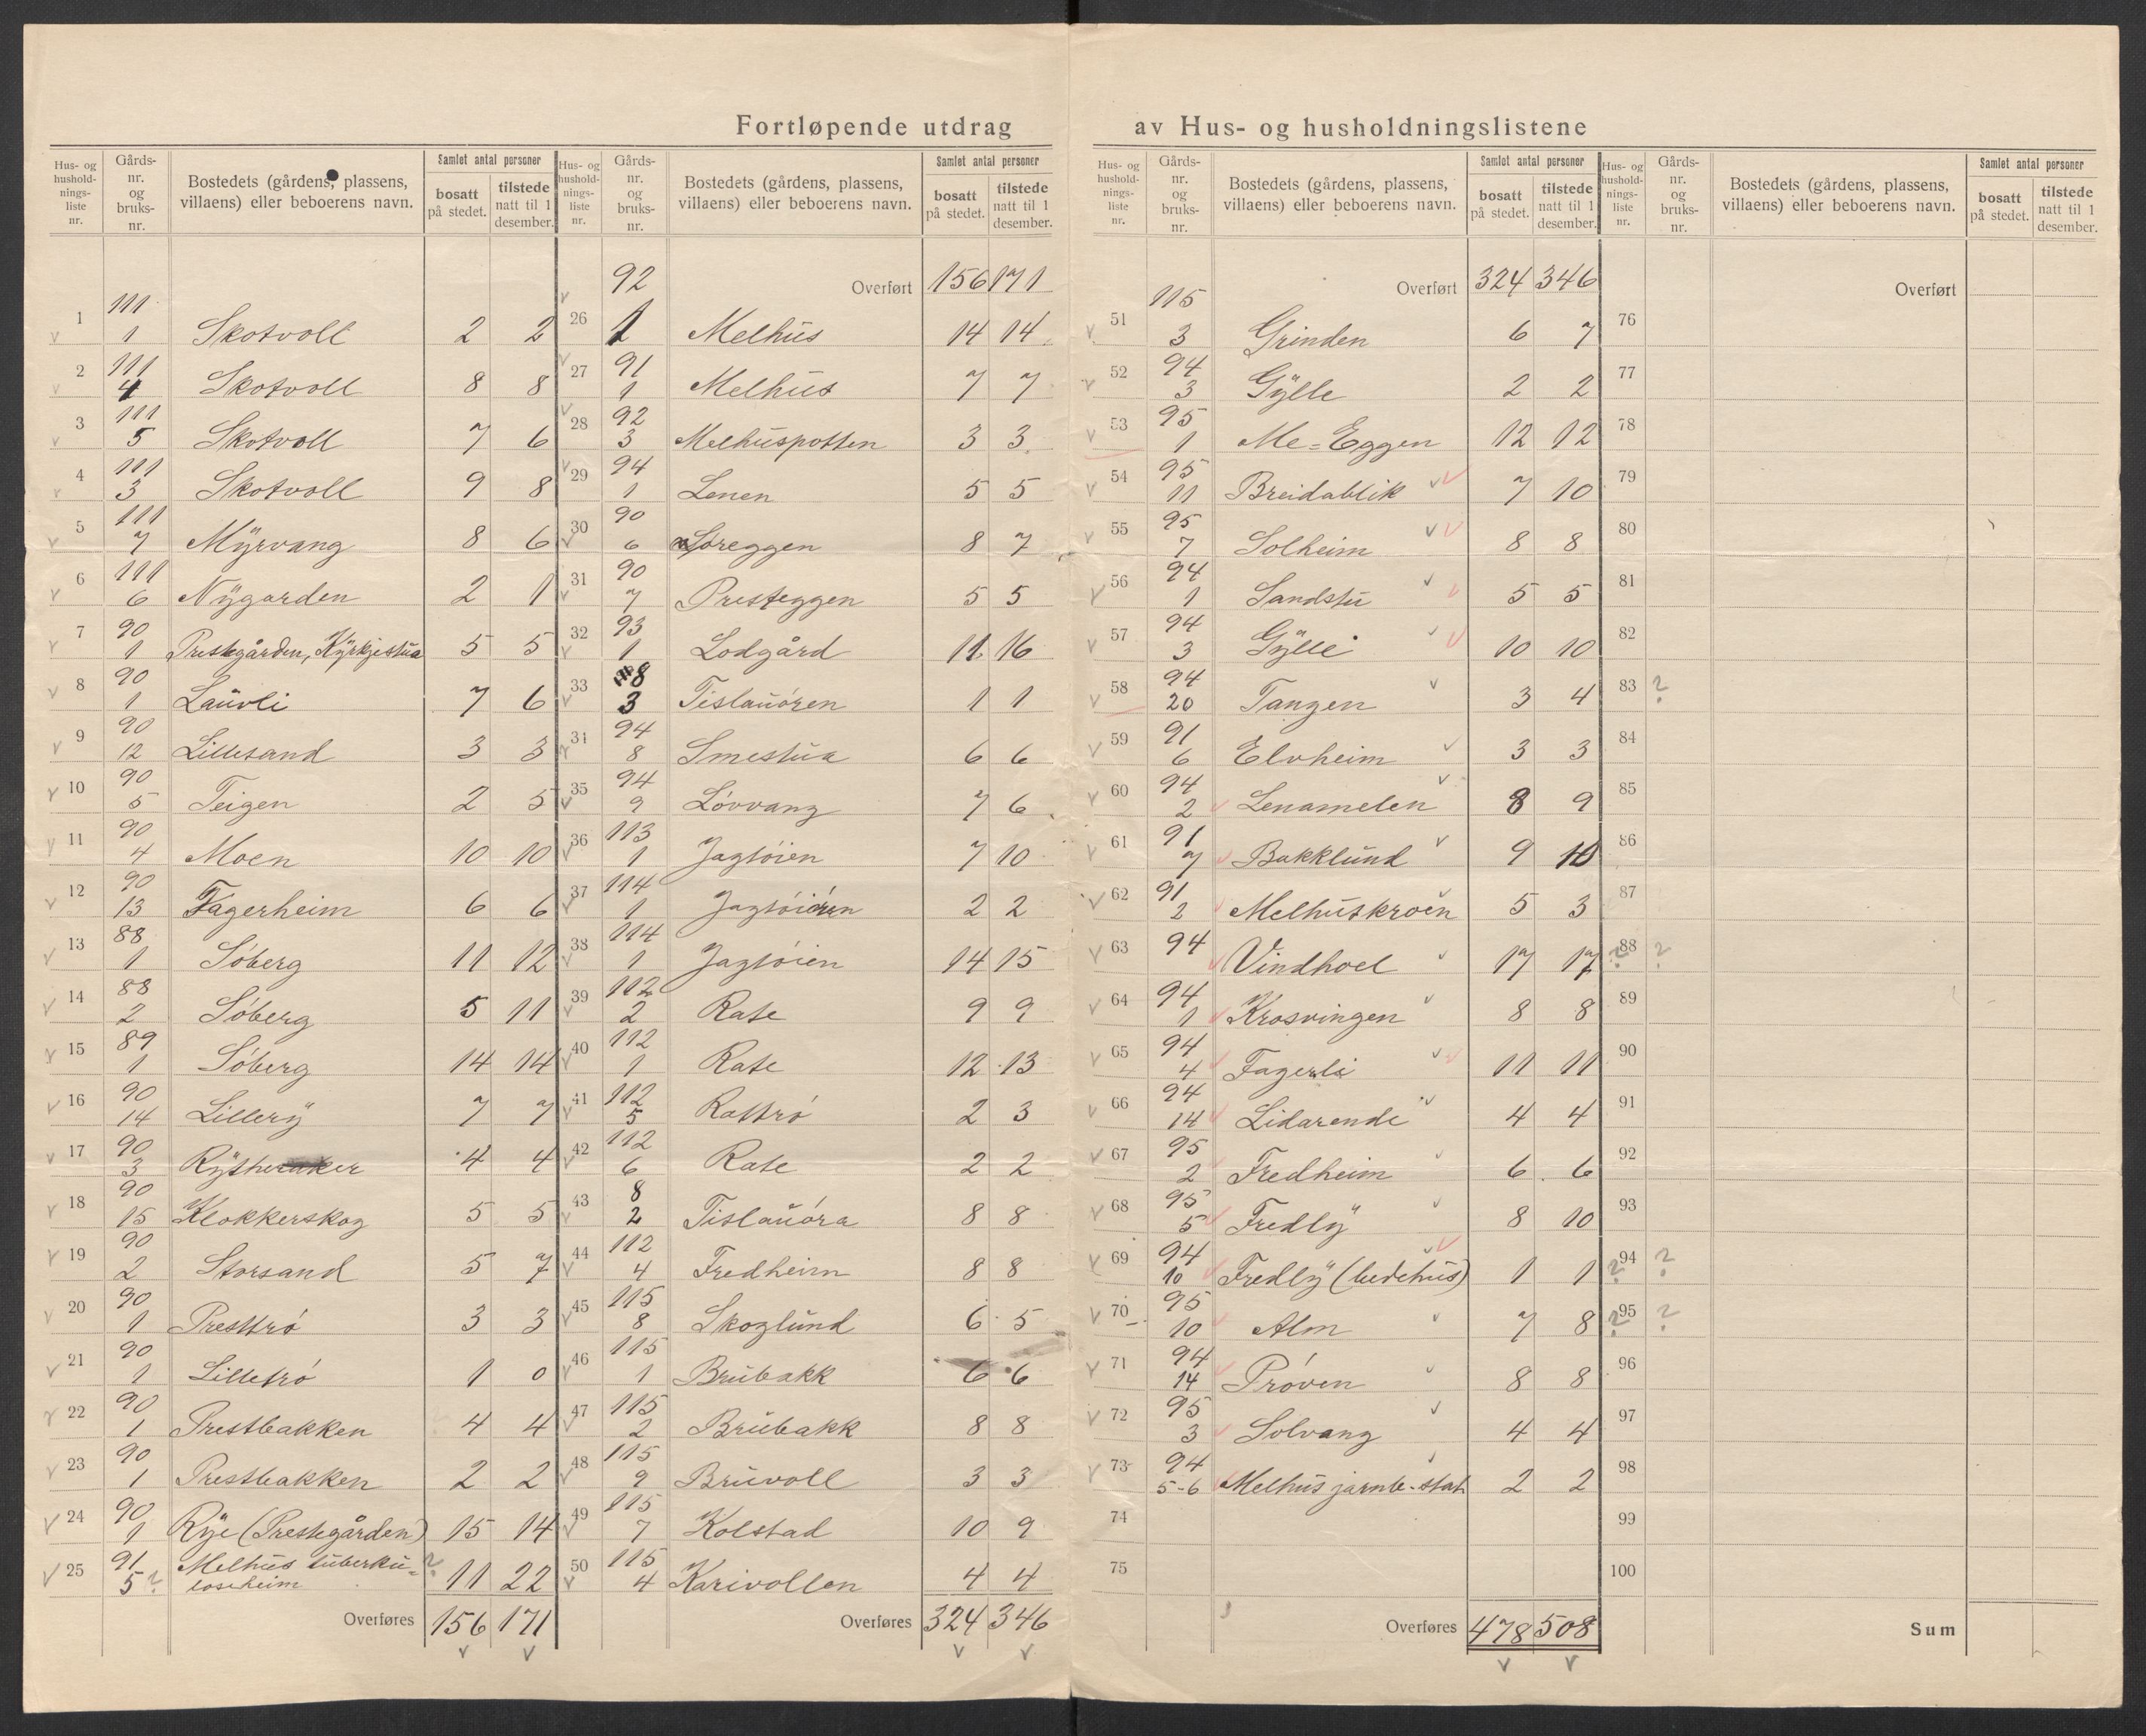 Fortløpende utdrag av Hus- og husholdningslistene
Hus- og hushold-nings-liste nr. | Gårds-nr. og bruks-nr. | Bostedets (gårdens, plassens, villaens) eller beboerens navn. | Samlet antal personer | bosatt på stedet. | tilstede natt til 1 desember.
1 111 1 Skotvoll 2 2
2 111 4 Skotvoll 8 8
3 111 5 Skotvoll 7 6
4 111 3 Skotvoll 9 8
5 111 7 Myrvang 8 6
6 111 6 Nygarden 2 1
7 90 1 Prestegården, Kyrkjestua 5 5
8 90 1 Lauvli 7 6
9 90 12 Lillesand 3 3
10 90 5 Teigen 2 5
11 90 4 Moen 10 10
12 90 13 Fagerheim 6 6
13 88 1 Søberg 11 12
14 88 2 Søberg 5 11
15 89 1 Søberg 14 14
16 90 14 Lillery 7 7
17 90 3 4 4
18 90 15 Klokkerskog 5 5
19 90 2 Storsand 5 7
20 90 1 Prestrø 3 3
21 90 1 Lilletrø 1 0
22 90 1 Prestbakken 4 4
23 90 1 Prestbakken 2 2
24 90 1 Rye (Prestegården) 15 14
25 91 5 ? Melhus tuberku=
loseheim ? 11 22
Overføres 156 171
Hus- og hushold-nings-liste nr. | Gårds-nr. og bruks-nr. | Bostedets (gårdens, plassens, villaens) eller beboerens navn. | Samlet antal personer | bosatt på stedet. | tilstede natt til 1 desember.
Overført 156 171
26 92 1 Melhus 14 14
27 91 1 Melhus 7 7
28 92 3 Melhuspotten 3 3
29 94 1 Lenen 5 5
30 90 6 Loreggen 8 7
31 90 7 Presteggen 5 5
32 93 1 Lodgård 11 16
33 8 3 Tislauøren 1 1
34 94 8 Smestua 6 6
35 94 9 Løvvang 7 6
36 113 1 Jagtøien 7 10
37 114 1 2 2
38 114 1 Jagtøien 14 15
39 112 2 Rate 9 9
40 112 1 Rate 12 13
41 112 5 Rattrø 2 3
42 112 6 Rate 2 2
43 8 2 Tislauøra 8 8
44 112 4 Fredheim 8 8
45 115 8 Skoglund 6 5
46 115 1 Brubakk 6 6
47 115 2 Brubakk 8 8
48 115 9 Bruvoll 3 3
49 115 7 Kolstad 10 9
50 115 4 Karivollen 4 4
Overføres 324 346
Hus- og hushold-nings-liste nr. | Gårds-nr. og bruks-nr. | Bostedets (gårdens, plassens, villaens) eller beboerens navn. | Samlet antal personer | bosatt på stedet. | tilstede natt til 1 desember.
Overført 324 346
51 115 3 Grinden 6 7
52 94 3 Gylle 2 2
53 95 1 Me=Eggen 12 12
54 95 11 Breidablik 7 10
55 95 7 Solheim 8 8
56 94 1 Sandstu 5 5
57 94 3 Gylle 10 10
58 94 20 Tangen 3 4
59 91 6 Elvheim 3 3
60 94 2 Lenamelen 8 9
61 91 7 Bakklund 9 10
62 91 2 Melhuskroen 5 3
63 94 Vindhoel 17 17
64 94 1 Krosvingen 8 8
65 94 4 Fagerli 11 11
66 94 14 Lidarende 4 4
67 95 2 Fredheim 6 6
68 95 5 Fredly 8 10
69 94 10 Fredly (bedehus) 1 1
70 95 10 Alm 7 8
71 94 14 Prøven 8 8
72 95 3 Solvang 4 4
73 94 5-6 Melhus jarnb.-stat. 2 2
74
75
Overføres 478 508
Hus- og hushold-nings-liste nr. | Gårds-nr. og bruks-nr. | Bostedets (gårdens, plassens, villaens) eller beboerens navn. | Samlet antal personer | bosatt på stedet. | tilstede natt til 1 desember.
Overført
76
77
78
79
80
81
82
83 ?
84
85
86
87
? 88 ?
89
90
91
92
93
? 94 ?
? 95 ?
96
97
98
99
100
Sum